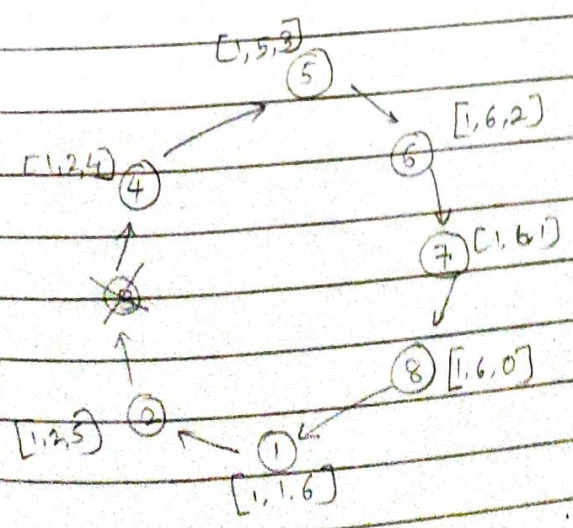 [1,5,3]
5
[1,6,2]
6
[1,2,4]
4
[1,6,1]
7
8 [1,6,0]
2
[1,2,5]
1
[1,1,6]